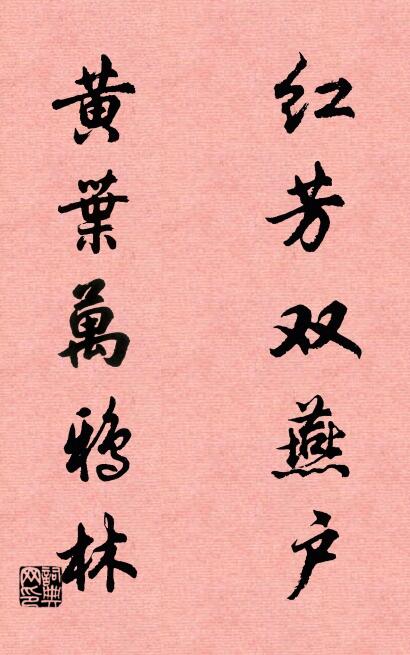 红芳双燕户
黄葉萬鴉林
詞典网印